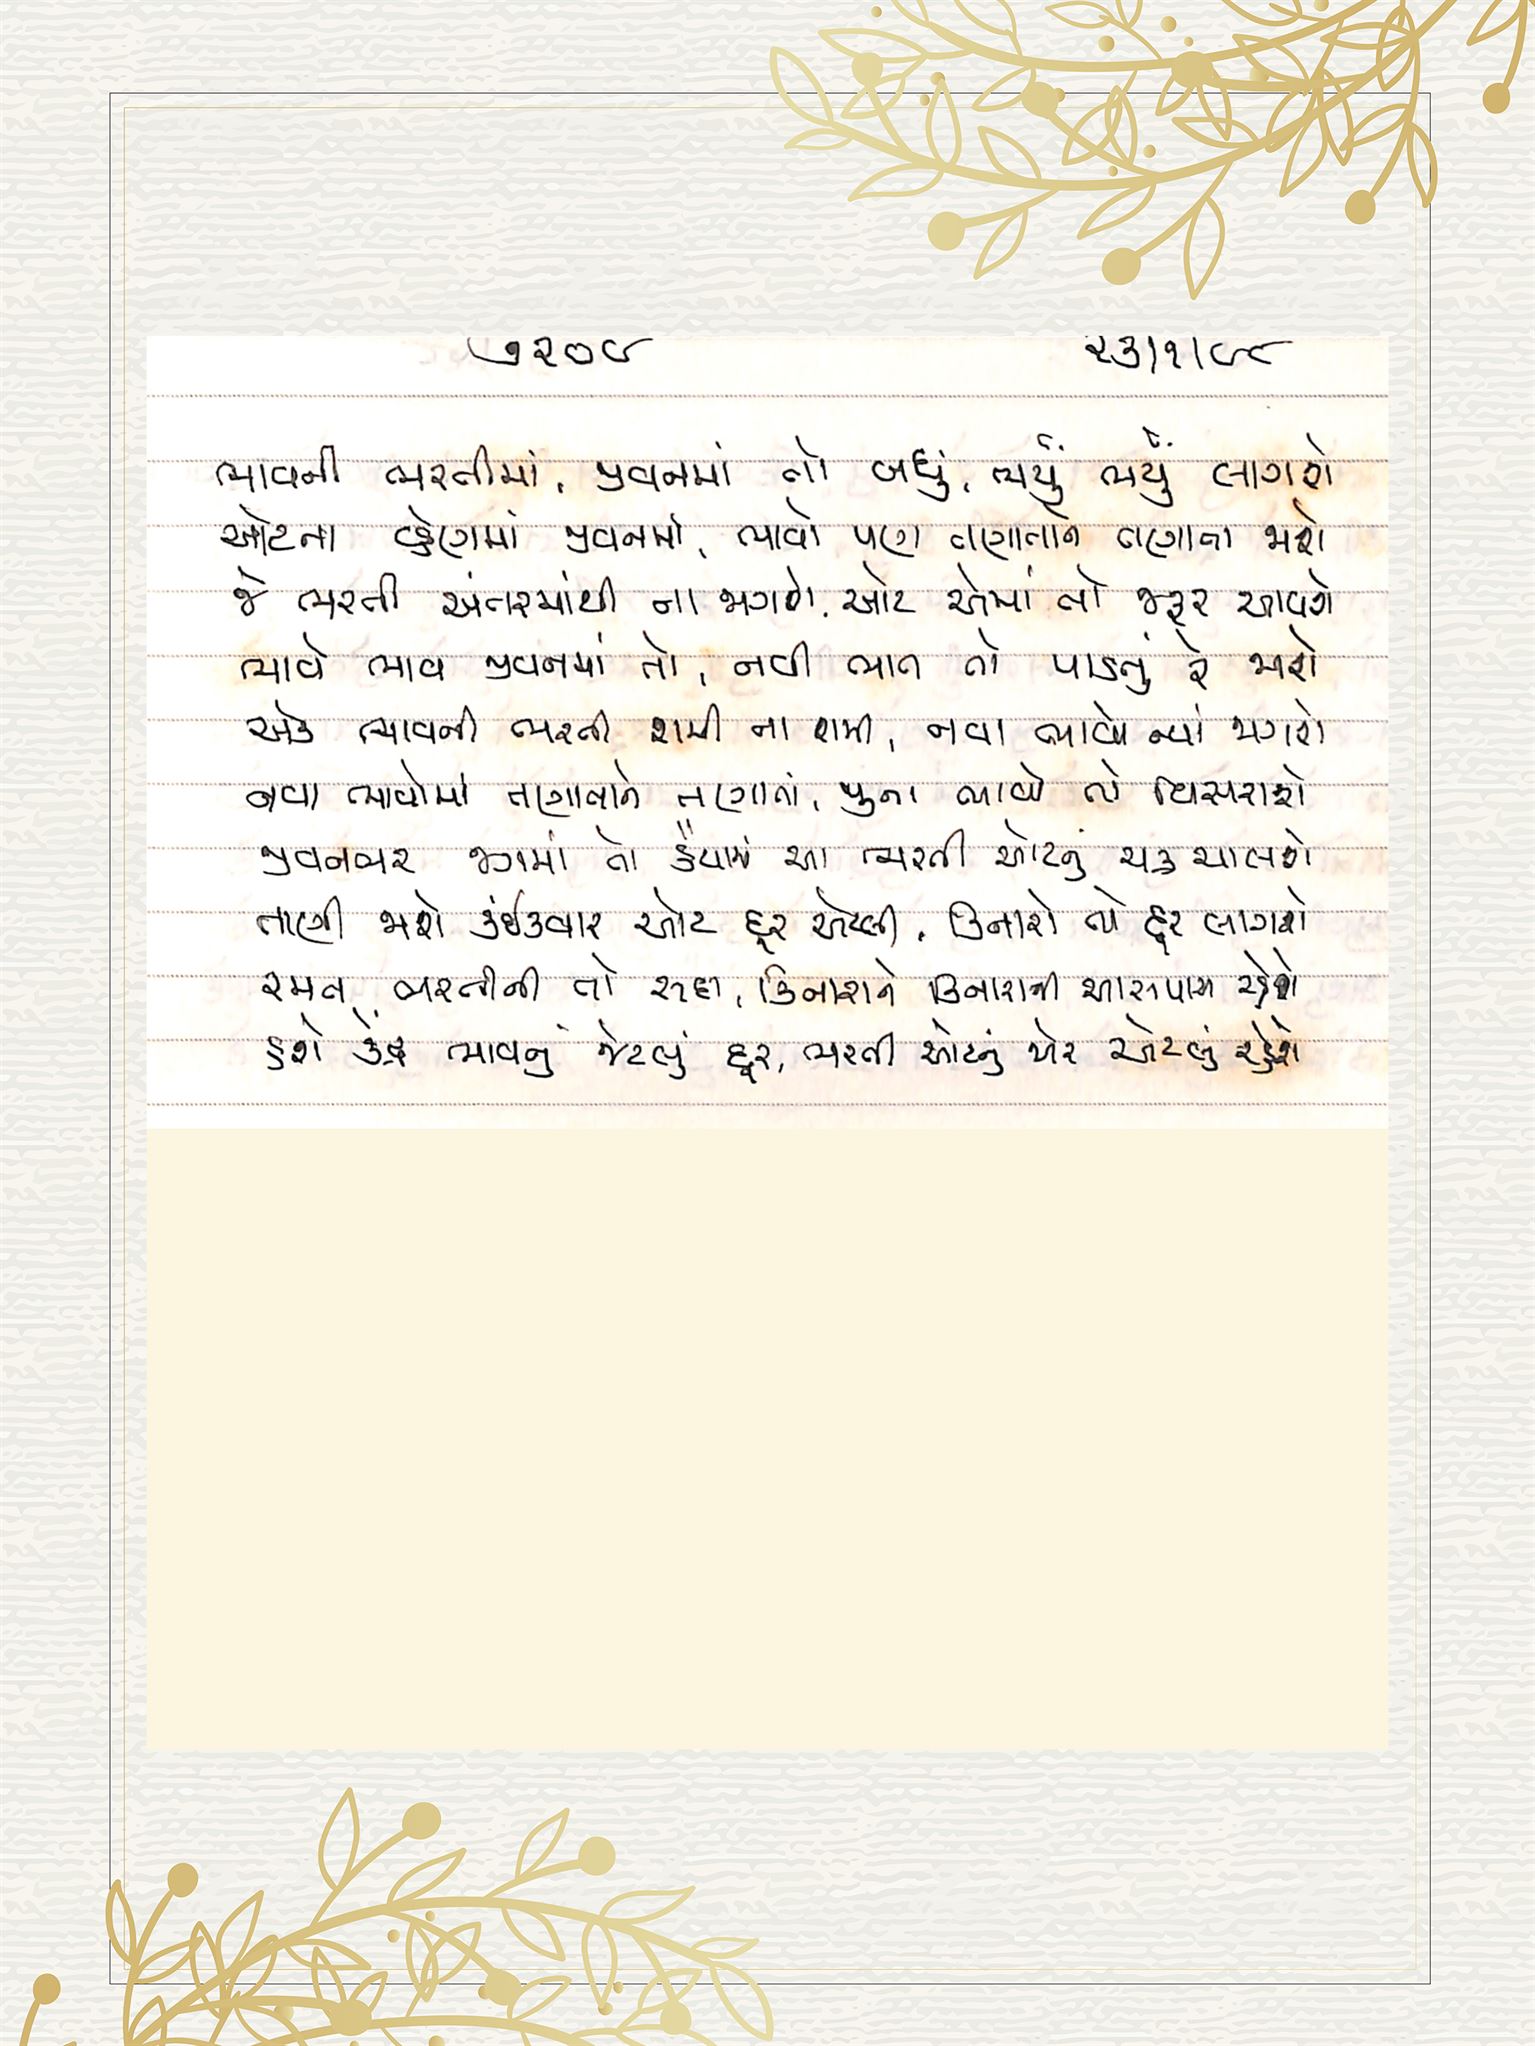 ૭૨૦૯ ૨૩/૧/૯૮
ભાવની ભરતીમાં, જીવનમાં તો બધું, ભર્યું ભર્યું લાગશે
ઓટના વ્હેણમાં જીવનમાં, ભાવો પણ તણાતાને તણાતા જાશે
જે ભરતી અંતરમાંથી ના જાગશે, ઓટ એમાં તો જરૂર આવશે
ભાવે ભાવ જીવનમાં તો, નવી ભાત તો પાડતું રે જાશે
એક ભાવની ભરતી શમી ના શમી, નવા ભાવો ત્યાં જાગશે
નવા ભાવોમાં તણાતાને તણાતાં, જુના ભાવો તો વિસરાશે
જીવનભર જગમાં તો હૈયામાં આ ભરતી ઓટનું ચક્ર ચાલશે
તાણી જાશે કંઈકવાર ઓટ દૂર એટલી, કિનારો તો દૂર લાગશે
રમત ભરતીની તો સદા, કિનારાને કિનારાની આસપાસ રહેશે
હશે કેંદ્ર ભાવનું જેટલું દૂર, ભરતી ઓટનું જોર એટલું રહેશે